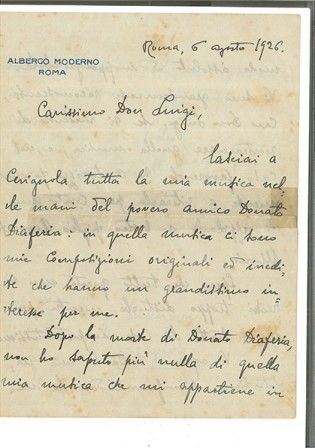 Roma, 6 agosto 1926.
ALBERGO MODERNO
ROMA
Carissimo Don Luigi,
lasciai a
Cerignola tutta la mia musica nel
le mani del povero amico Donato
Diaferia: in quella musica ci sono
mie composizioni originali ed inedi
te che hanno un grandissimo in=
teresse per me.
Dopo la morte di Donato Diaferia,
non ho saputo più nulla di quella
mia musica che mi appartiene in